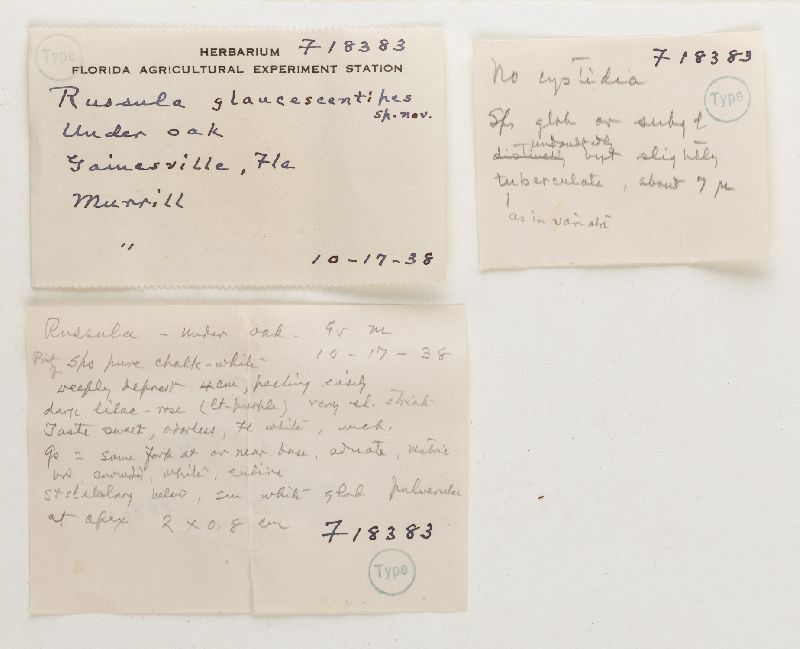 Type
HERBARIUM F18383
FLORIDA AGRICULTURAL EXPERIMENT STATION
Russula glaucescentipes
sp. nov.
Under oak
Gainesville, Fla
Murrill
"
10-17-38
F18383
No cystidia
Type
Sps glob or subgl
undoubtedly
distinctly but slightly
tuberculate, about 7 μ
as in variata
Russula - under oak - Gv M
10-17-38
Print of Sps pure chalk-white
deprest 4 cm, peeling easily
dark lilac-rose (lt-purple) very sl. striate
Taste sweet, odorless, fl white, unch.
Gs = some fork at or near base, adnate, ventric
white, entire
below, sm white glab pulverular
at apex 2 x 0.8 cm
F18383
Type